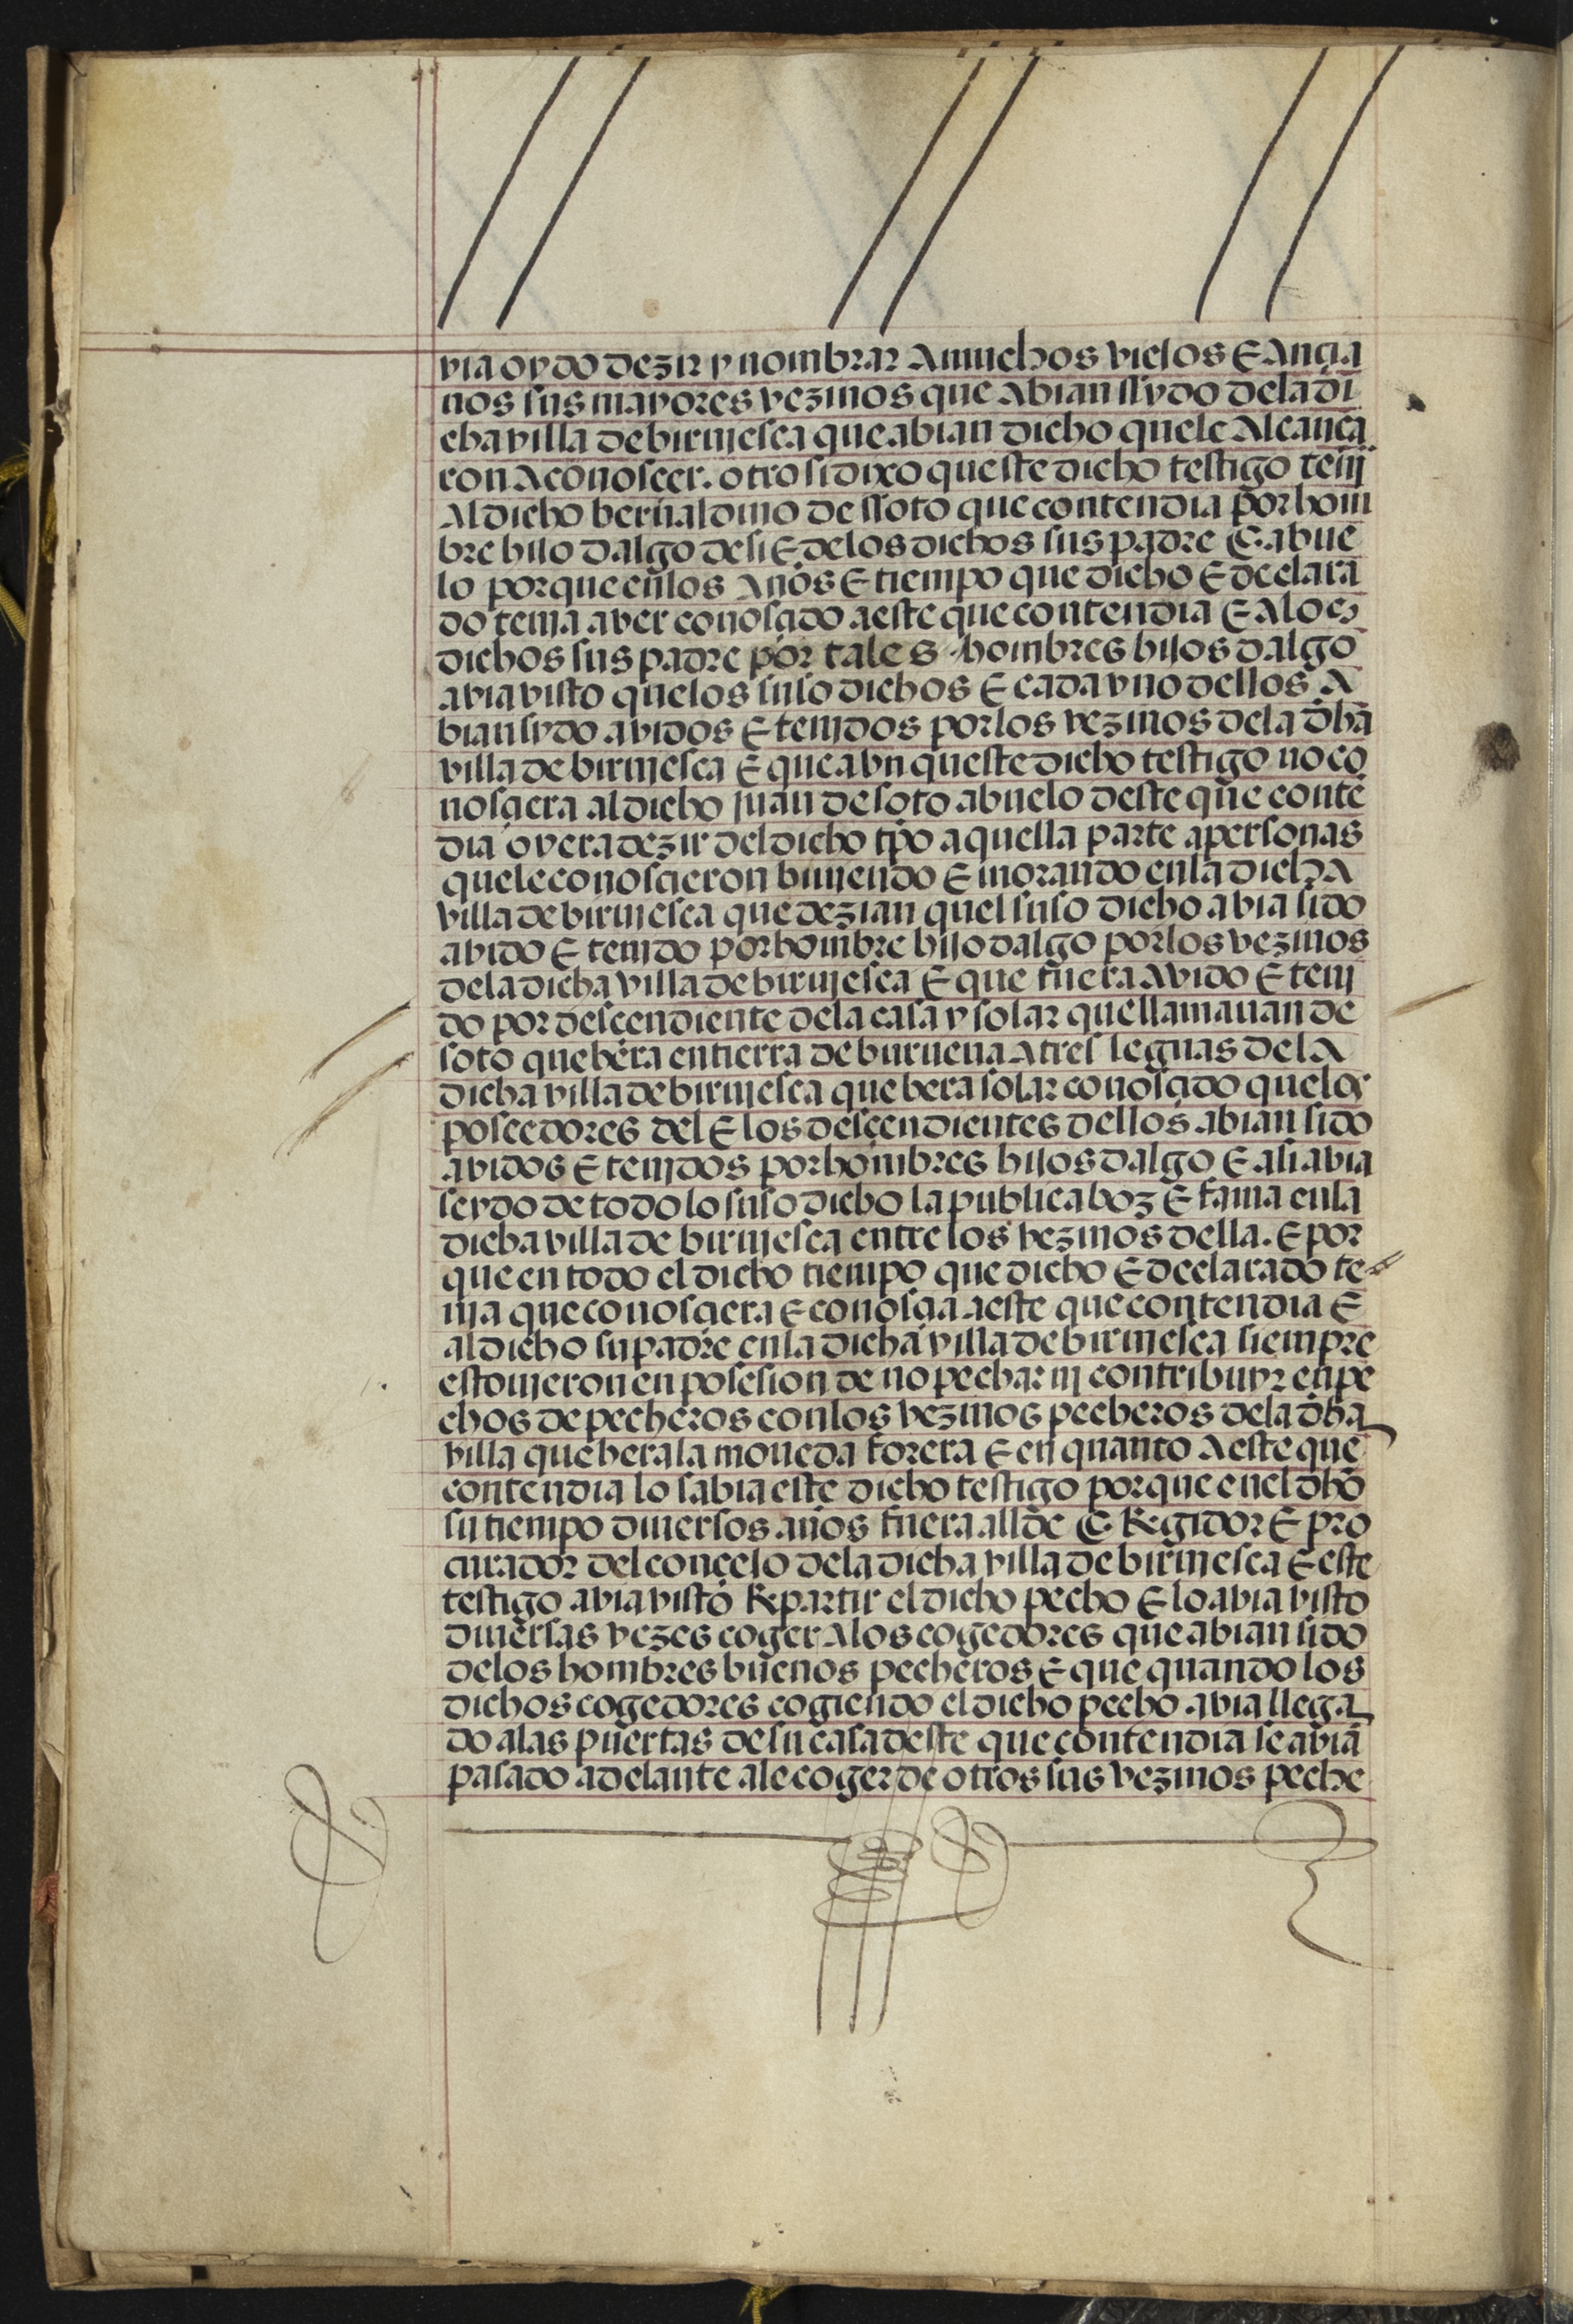 via oydo dezir y nombrar a muchos viejos E ançia
nos sus mayores vezinos que abian ssydo de la di
cha villa de birujesca que abian dicho que le alcança
ron a conosçer. otro si dixo queste dicho testigo tenj
al dicho bernaldino de ssoto que contendia por hom
bre hijo dalgo de si E de los dichos sus padre E abue
lo porque en los años E tiempo que dicho E declara
do tenia aver conosçido a este que contendia E a los
dichos sus padre por tales hombres hijos dalgo
avia visto que los suso dichos E cada vno dellos a
bian sydo avidos E tenjdos por los vezinos de la dha
villa de birujesca E que avn queste dicho testigo no co
nosçiera al dicho juan de soto abuelo deste que conte
dia oyera dezir del dicho tpo aquella parte a personas
que le conosçieron biujendo E morando en la dicha
villa de birujesca que dezian quel suso dicho abia sido
avido E tenjdo por hombre hijo dalgo por los vezinos
de la dicha villa de birujesca E que fuera avido E tenj
do por desçendiente de la casa y solar que llamauan de
soto que hera en tierra de burueua a tres leguas de la
dicha villa de birujesca que hera solar conosçido que los
poseedores del E los desçendientes dellos abian sido
avidos E tenjdos por hombres hijos dalgo E asi abia
seydo de todo lo suso dicho la publica boz E fama en la
dicha villa de birujesca entre los vezinos della. E por
que en todo el dicho tiempo que dicho E declarado te
nia que conosçiera E conosçia a este que contendia E
al dicho su padre en la dicha villa de birujesca siempre
estoujeron en posesion de no pechar nj contribuyr en pe
chos de pecheros con los vezinos pecheros de la dha
villa que hera la moneda forera E en quanto a este que
contendia lo sabia este dicho testigo porque en el dho
su tiempo diuersos años fuera allde E Regidor E pro
curador del conçejo de la dicha villa de birujesca E este
testigo avia visto Repartir el dicho pecho E lo avia visto
diuersas vezes coger a los cogedores que abian sido
de los hombres buenos pecheros E que quando los
dichos cogedores cogiendo el dicho pecho avia llega
do a las puertas de su casa deste que contendia se avia
pasado adelante a le coger de otros sus vezinos peche